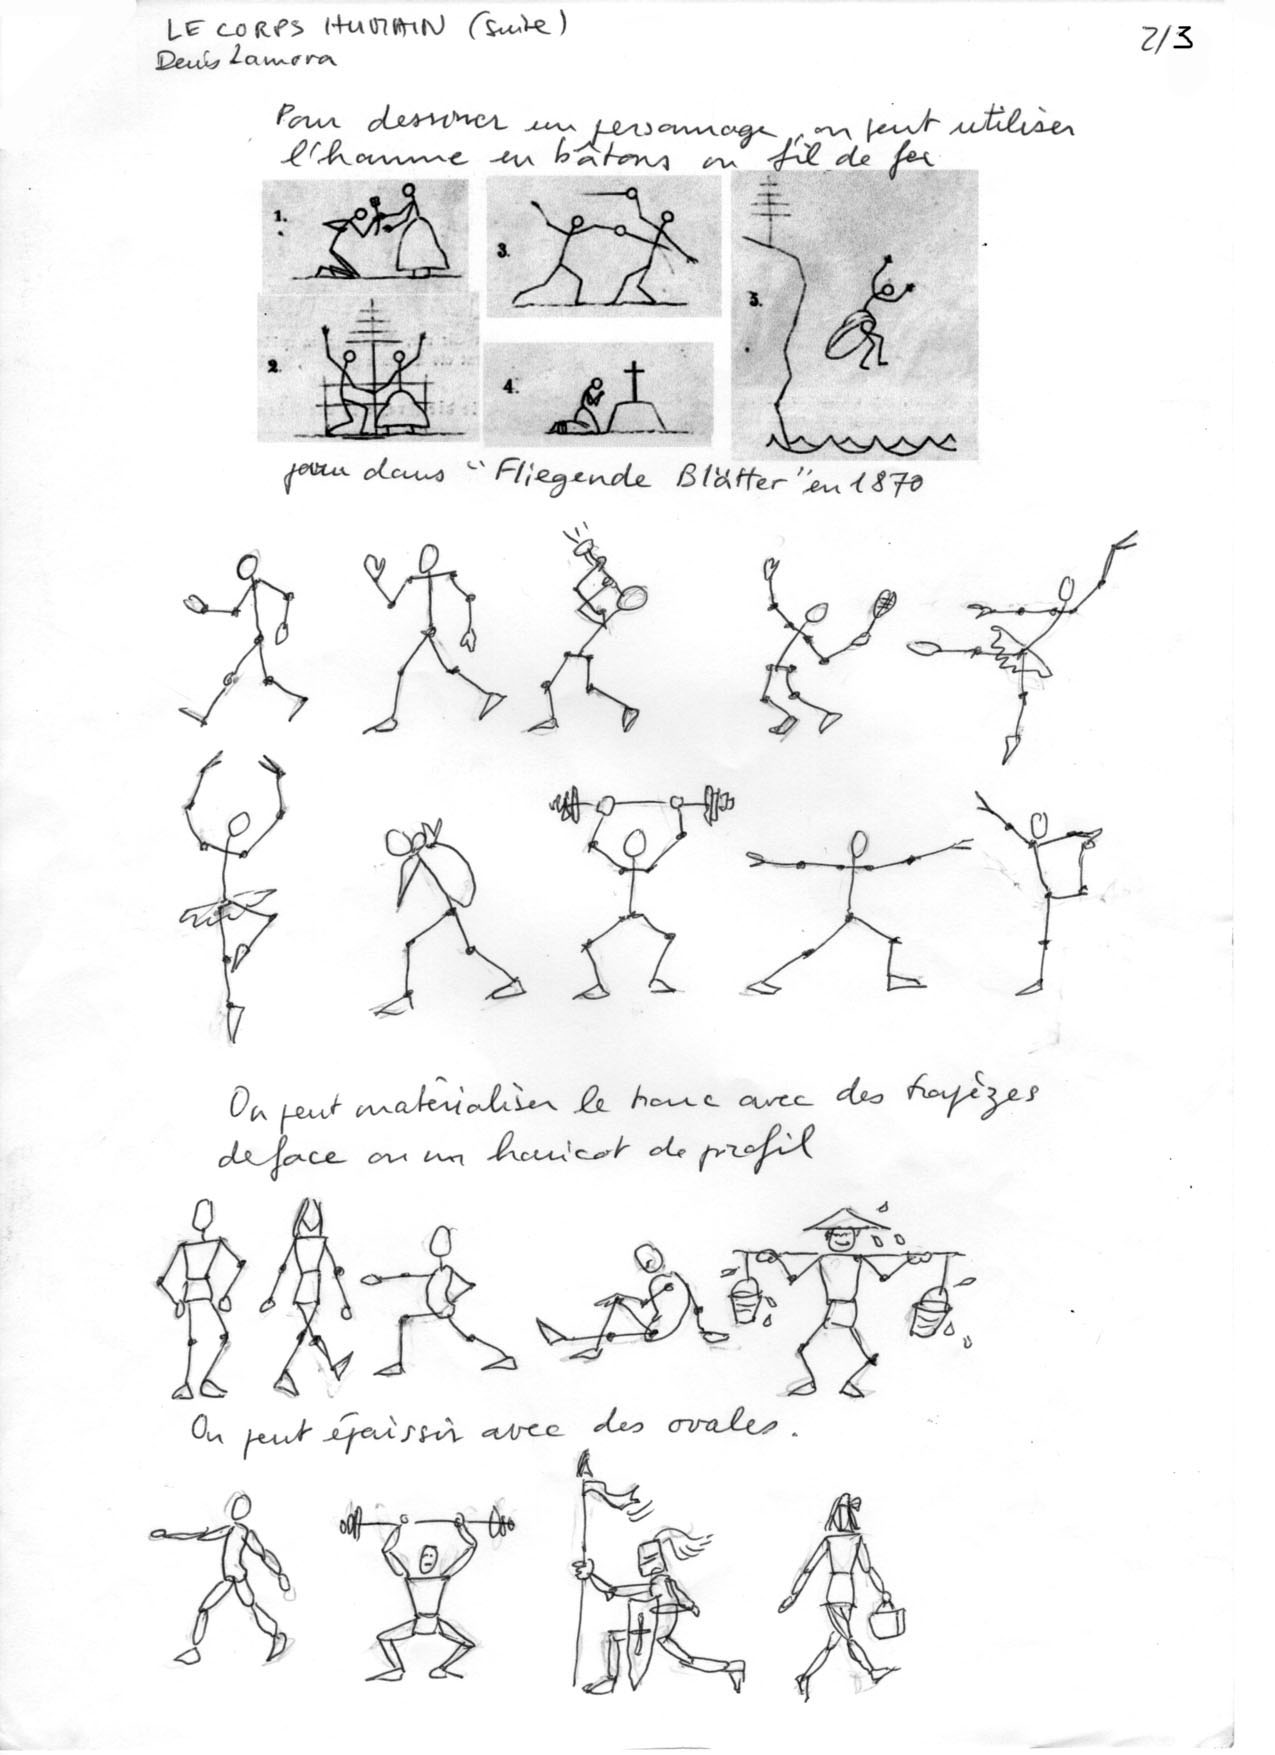 LE CORPS HUMAIN (suite)
Denis Zamora
2/3
Pour dessiner un personnage, on peut utiliser
l'homme en bâtons ou fil de fer
1.
2.
3.
4.
5.
paru dans "Fliegende Blätter" en 1870
On peut matérialiser le tronc avec des trapèzes
de face ou un haricot de profil
On peut épaissir avec des ovales.